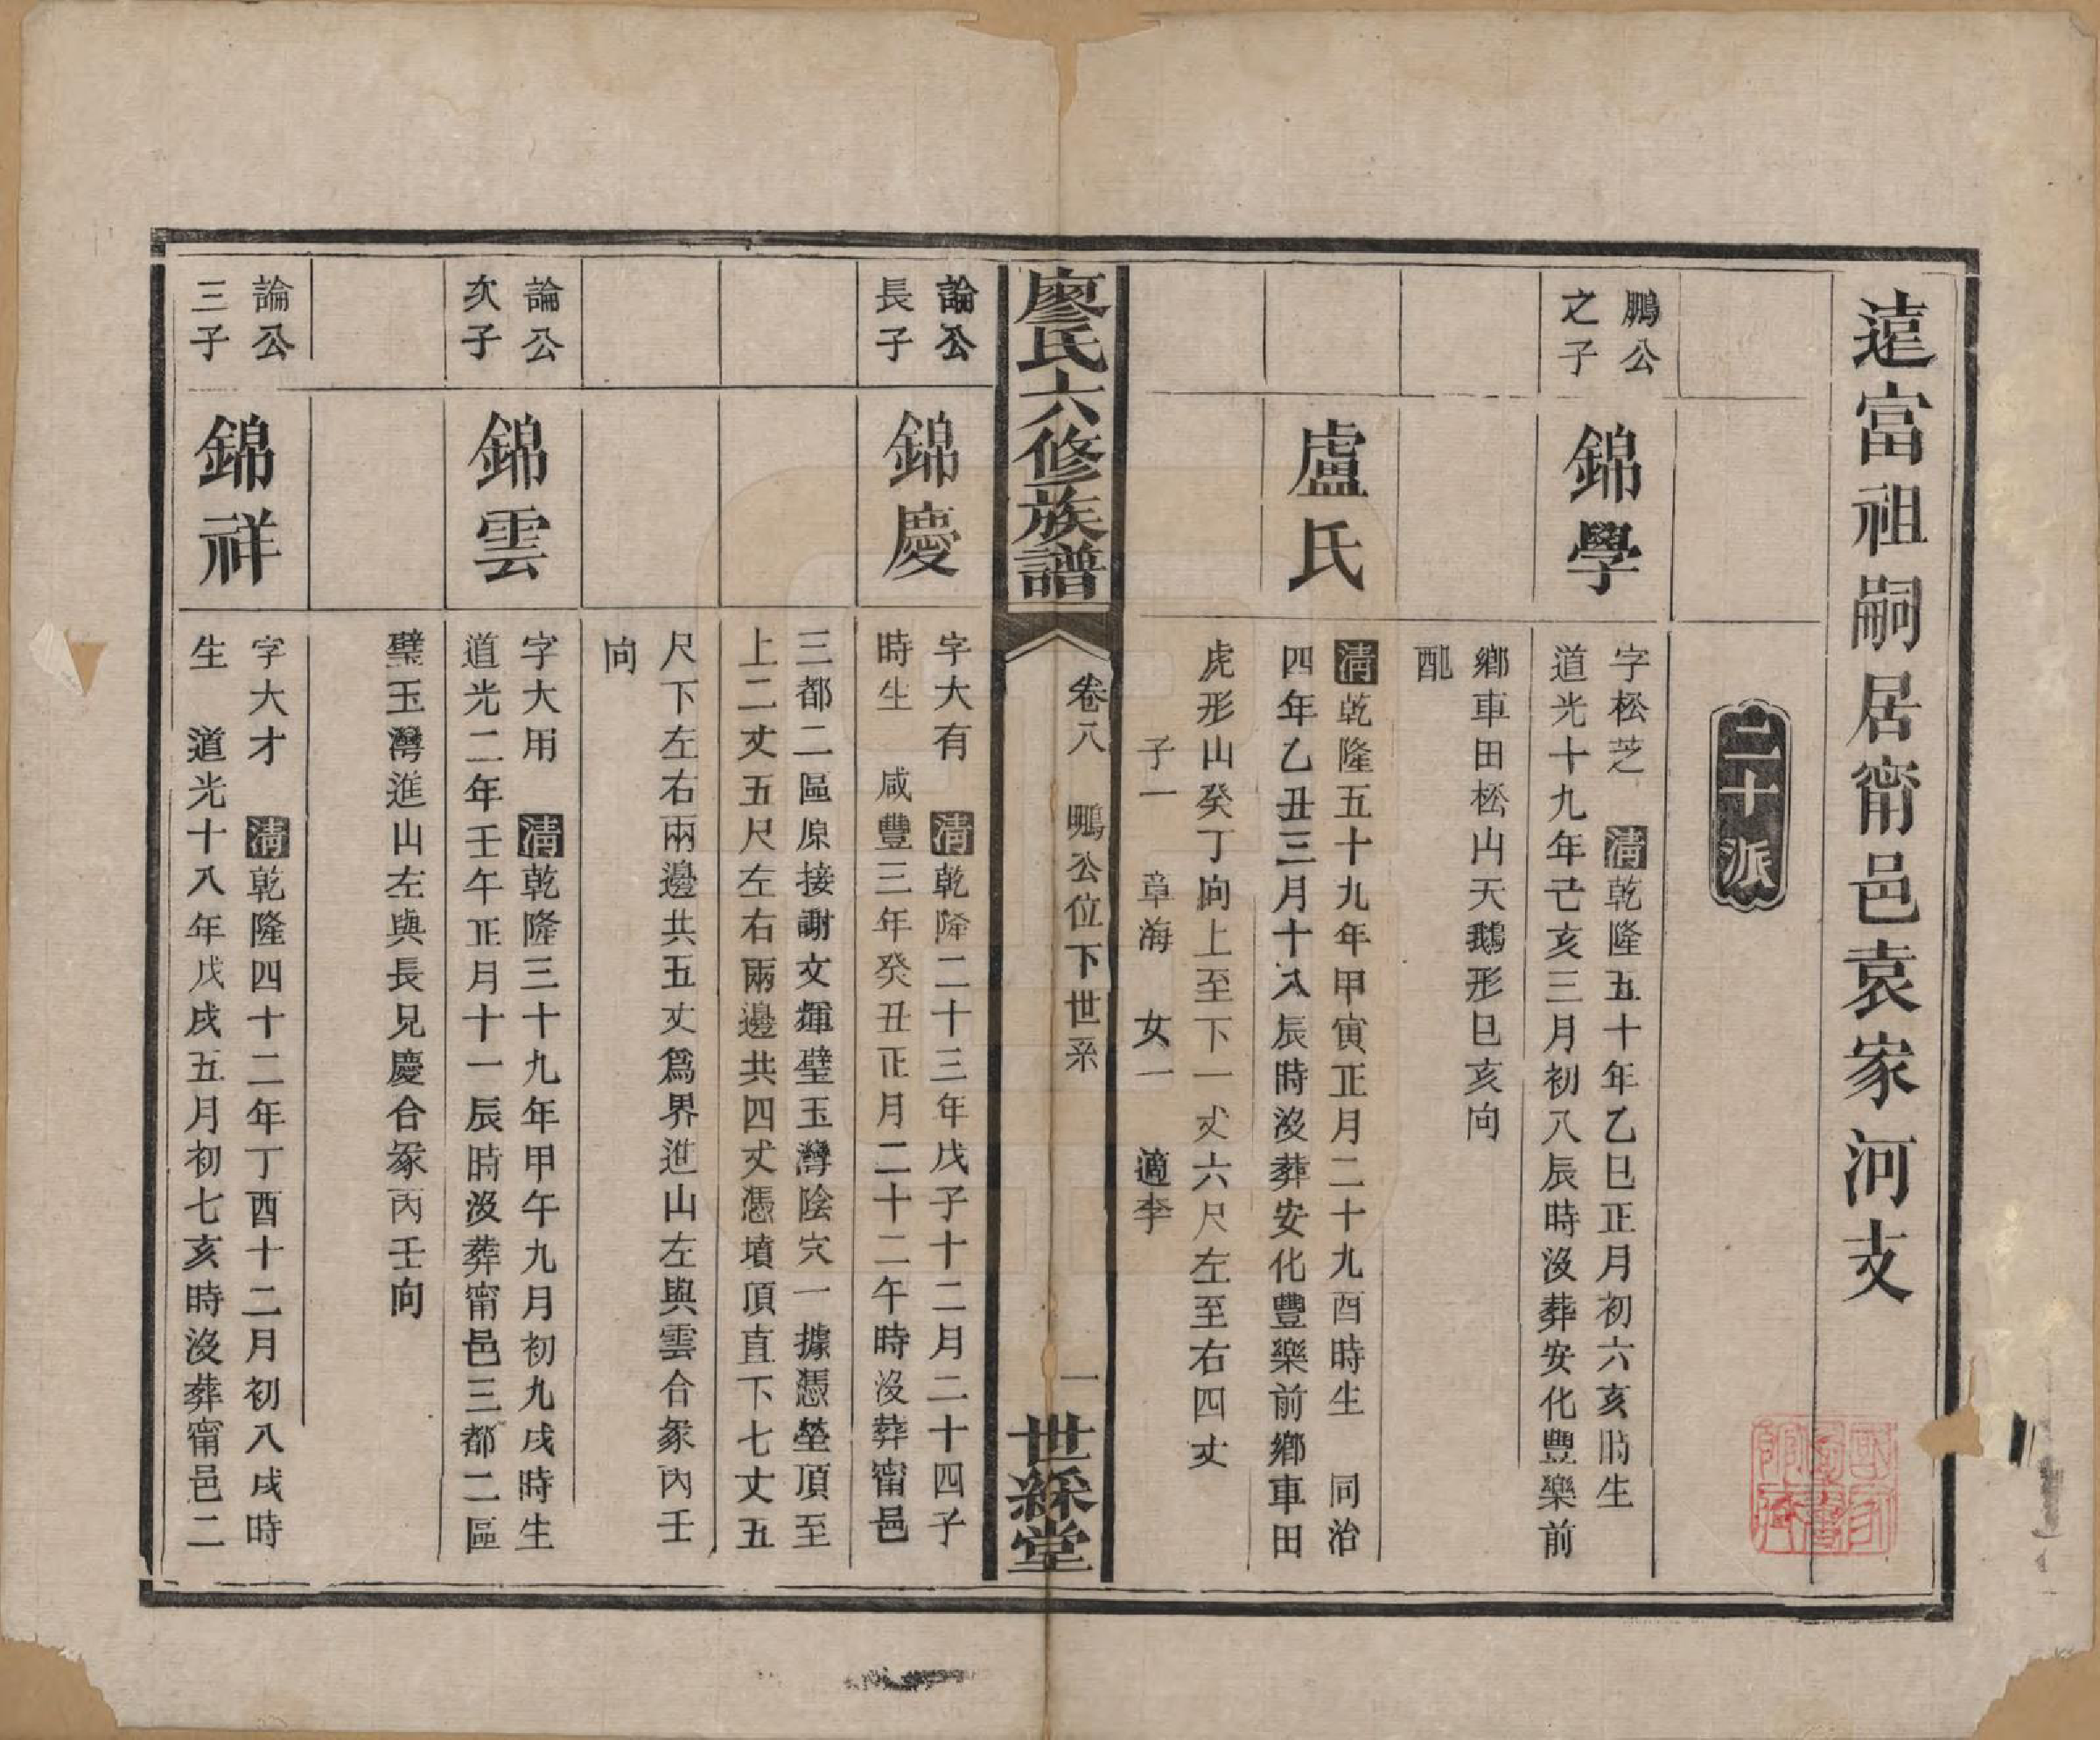 遠富祖嗣居甯邑袁家河支
二十派
鵬公
之子
錦學
字松芝 清乾隆五十年乙巳正月初六亥時生
道光十九年己亥三月初八辰時沒葬安化豐樂前
鄉車田松山天鵝形巳亥向
配
盧氏
清乾隆五十九年甲寅正月二十九酉時生 同治
四年乙丑三月十八辰時沒葬安化豐樂前鄉車田
虎形山癸丁向上至下一丈六尺左至右四丈
子一 章海 女一 適李
廖氏六修族譜
卷八 鵬公位下世系
一
世綵堂
論公
長子
錦慶
字大有 清乾隆二十三年戊子十二月二十四子
時生 咸豐三年癸丑正月二十二午時沒葬甯邑
三都二區原接謝文輝璧玉灣陰穴一據憑塋頂至
上二丈五尺左右兩邊共四丈憑墳頂直下七丈五
尺下左右兩邊共五丈爲界進山左與雲合冢丙壬
向
論公
次子
錦雲
字大用 清乾隆三十九年甲午九月初九戌時生
道光二年壬午正月十一辰時沒葬甯邑三都二區
璧玉灣進山左與長兄慶合冢丙壬向
論公
三子
錦祥
字大才 清乾隆四十二年丁酉十二月初八戌時
生 道光十八年戊戌五月初七亥時沒葬甯邑二